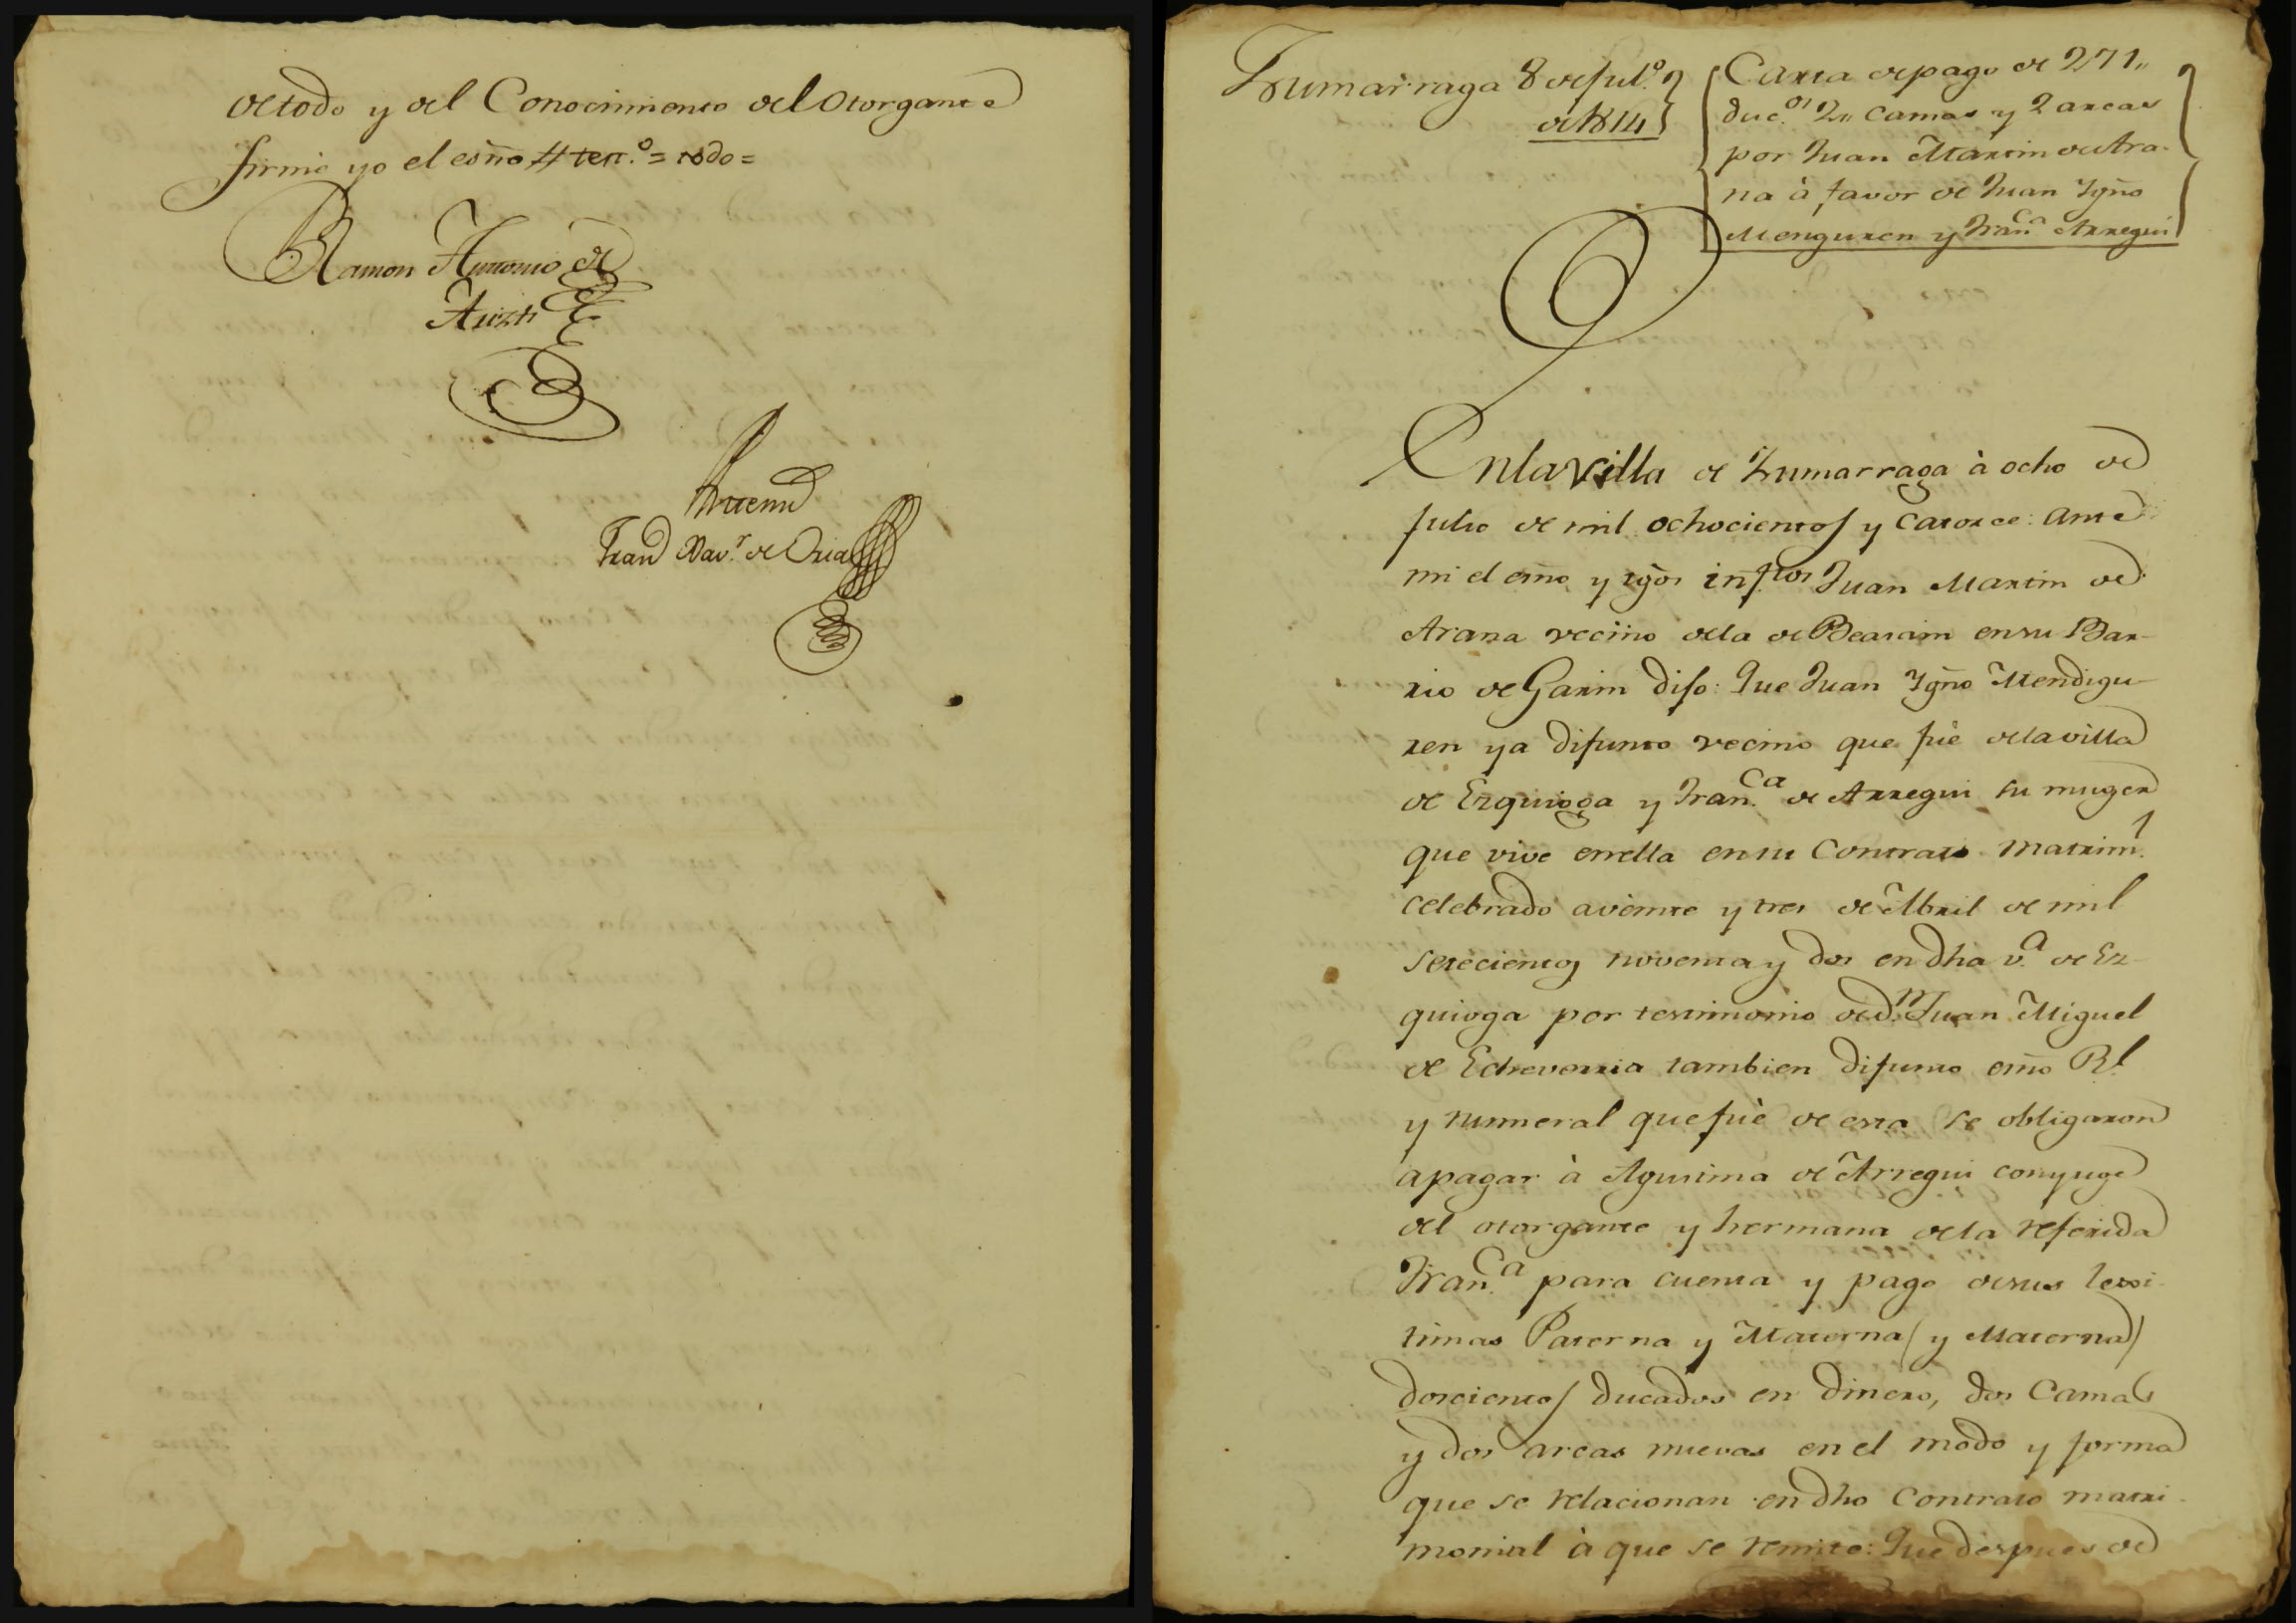 de todo y del Conocimiento del Otorgante
firmé yo el esño # = todo=
Ramon Antonio de
Ante mi
Fran.co Xav.r de Oria
Zumarraga 8 de Jul.o
de 1814
Carta de pago de 271,,
duc.os 2,, camas y 2 arcas
por Juan Martin de Ara-
na à favor de Juan Ygño
Menguren y Fran.ca Arregui
En la villa de Zumarraga à ocho de
Julio de mil ochocientos y catorce: ante
mi el esño y tgos infrtos Juan Martin de
Arana vecino de la de Beasain en su Bar-
rio de Garin dijo: Que Juan Ygño Mendigu-
ren ya difunto vecino que fué de la villa
de Ezquioga y Fran.ca de Arregui su muger
que vive en ella en su Contrato matrim.l
celebrado a veinte y tres de Abril de mil
setecientos noventa y dos en dha v.a de Ez-
quioga por testimonio de d.n Juan Miguel
de Echeverria tambien difunto esño R.l
y numeral que fué de esta se obligaron
a pagar à Agustina de Arregui conyuge
del otorgante y hermana de la referida
Fran.ca para cuenta y pago de sus lexi-
timas Paterna y Materna (y Materna)
doscientos ducados en dinero, dos Camas
y dos arcas nuevas en el modo y forma
que se relacionan en dho Contrato matri-
monial à que se remite: Que despues de